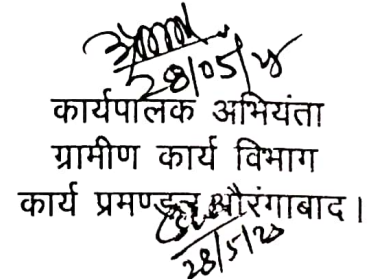 28/05/24
कार्यपालक अभियंता
ग्रामीण कार्य विभाग
कार्य प्रमण्डल औरंगाबाद।
28/5/20